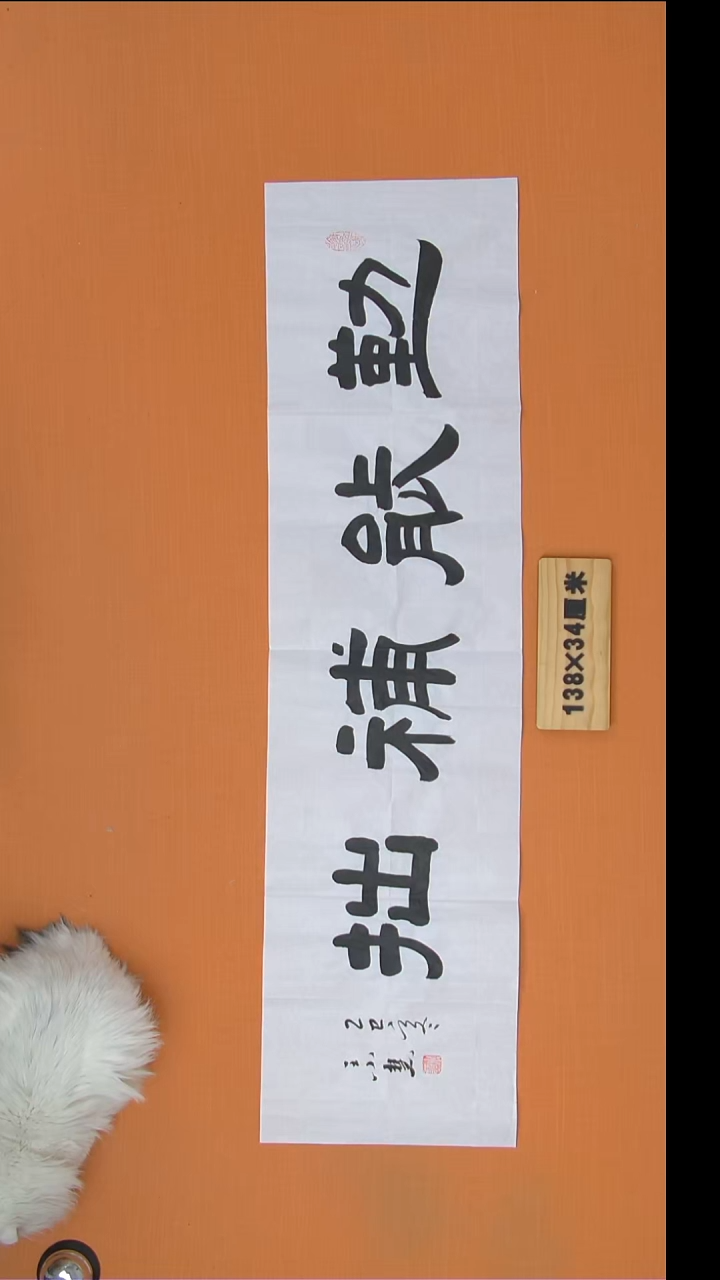 勤能補拙
乙巳
王小慧
138×34厘米